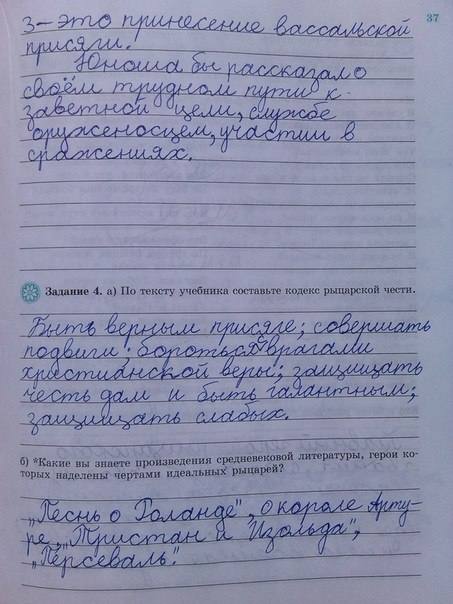 37
3-это принесение вассальской
присяги.
Юноша бы рассказал о
своём трудном пути к
заветной цели, службе
оруженосцем, участии в
сражениях.
Задание 4. а) По тексту учебника составьте кодекс рыцарской чести.
Быть верным присяге; совершать
подвиги; бороться с врагами
христианской веры; защищать
честь дам и быть галантным;
защищать слабых.
б) *Какие вы знаете произведения средневековой литературы, герои ко-
торых наделены чертами идеальных рыцарей?
„Песнь о Роланде", о короле Арту-
ре, „Тристан и Изольда",
„Персеваль".